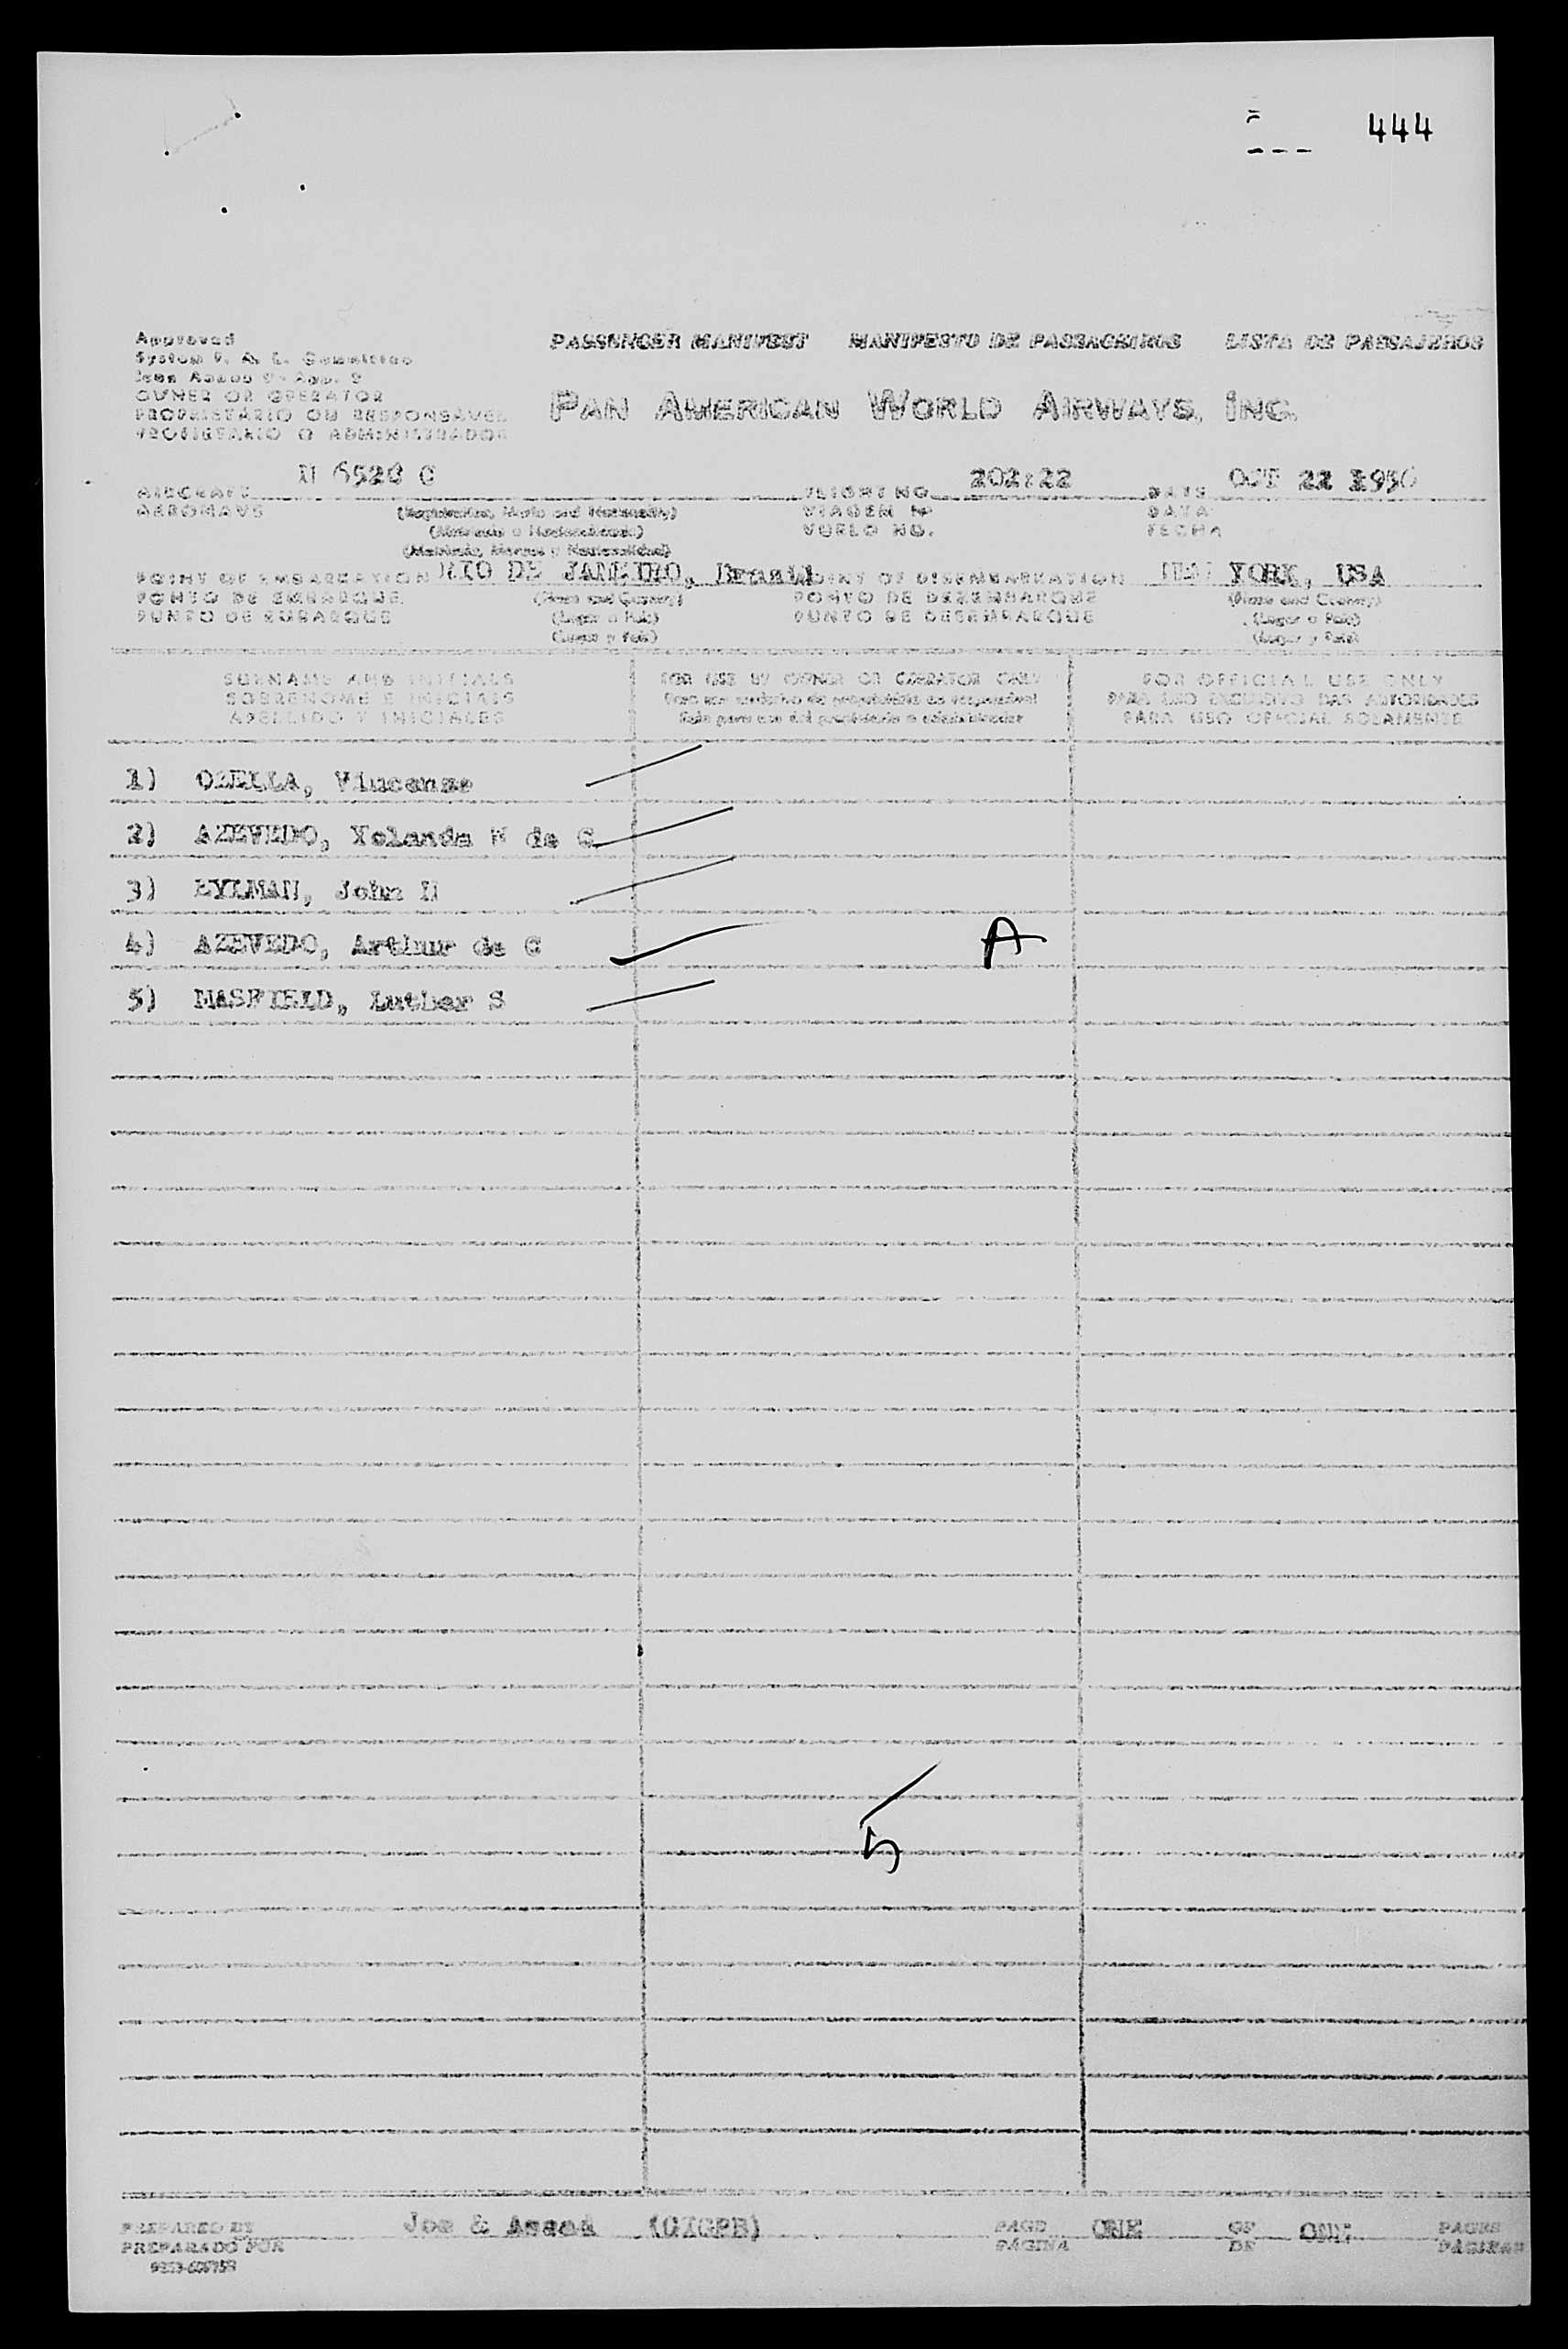 444
Approved
PASSENGER MANIFEST MANIFESTO DE PASSAGEIROS LISTA DE PASSAJEROS
OWNER OR OPERATOR
PROPRIETARIO OU RESPONSAVEL
PROPIETARIO O ADMINISTRADOR
PAN AMERICAN WORLD AIRWAYS, INC.
AIRCRAFT N 6528 C FLIGHT NO. 202:22 DATE OCT 22 1950
AERONAVE (Registration, Marks and Nationality) VIAGEM Nº DATA
(Matricula e Nacionalidade) VUELO NO. FECHA
(Matricula, Marcas y Nacionalidad)
POINT OF EMBARKATION RIO DE JANEIRO, Brasil POINT OF DISEMBARKATION NEW YORK, USA
PONTO DE EMBARQUE (Place and Country) PONTO DE DESEMBARQUE (Place and Country)
PUNTO DE EMBARQUE (Lugar e Pais) PUNTO DE DESEMBARQUE (Lugar e Pais)
(Lugar y Pais) (Lugar y Pais)
SURNAME AND INITIALS FOR USE BY OWNER OR OPERATOR ONLY FOR OFFICIAL USE ONLY
SOBRENOME E INICIAIS Para uso exclusivo do proprietário ou responsável PARA USO EXCLUSIVO DAS AUTORIDADES
APELLIDO Y INICIALES Solo para uso del propietario o administrador PARA USO OFICIAL SOLAMENTE
1) OZELLA, Vincenzo
2) AZEVEDO, Yolanda M de C
3) EYLMAN, John H
4) AZEVEDO, Arthur de C A
5) MASFIELD, Luther S
5
PREPARED BY Joe & (GIGPB) PAGE ONE OF ONE PAGES
PREPARADO POR PAGINA DE PAGINAS